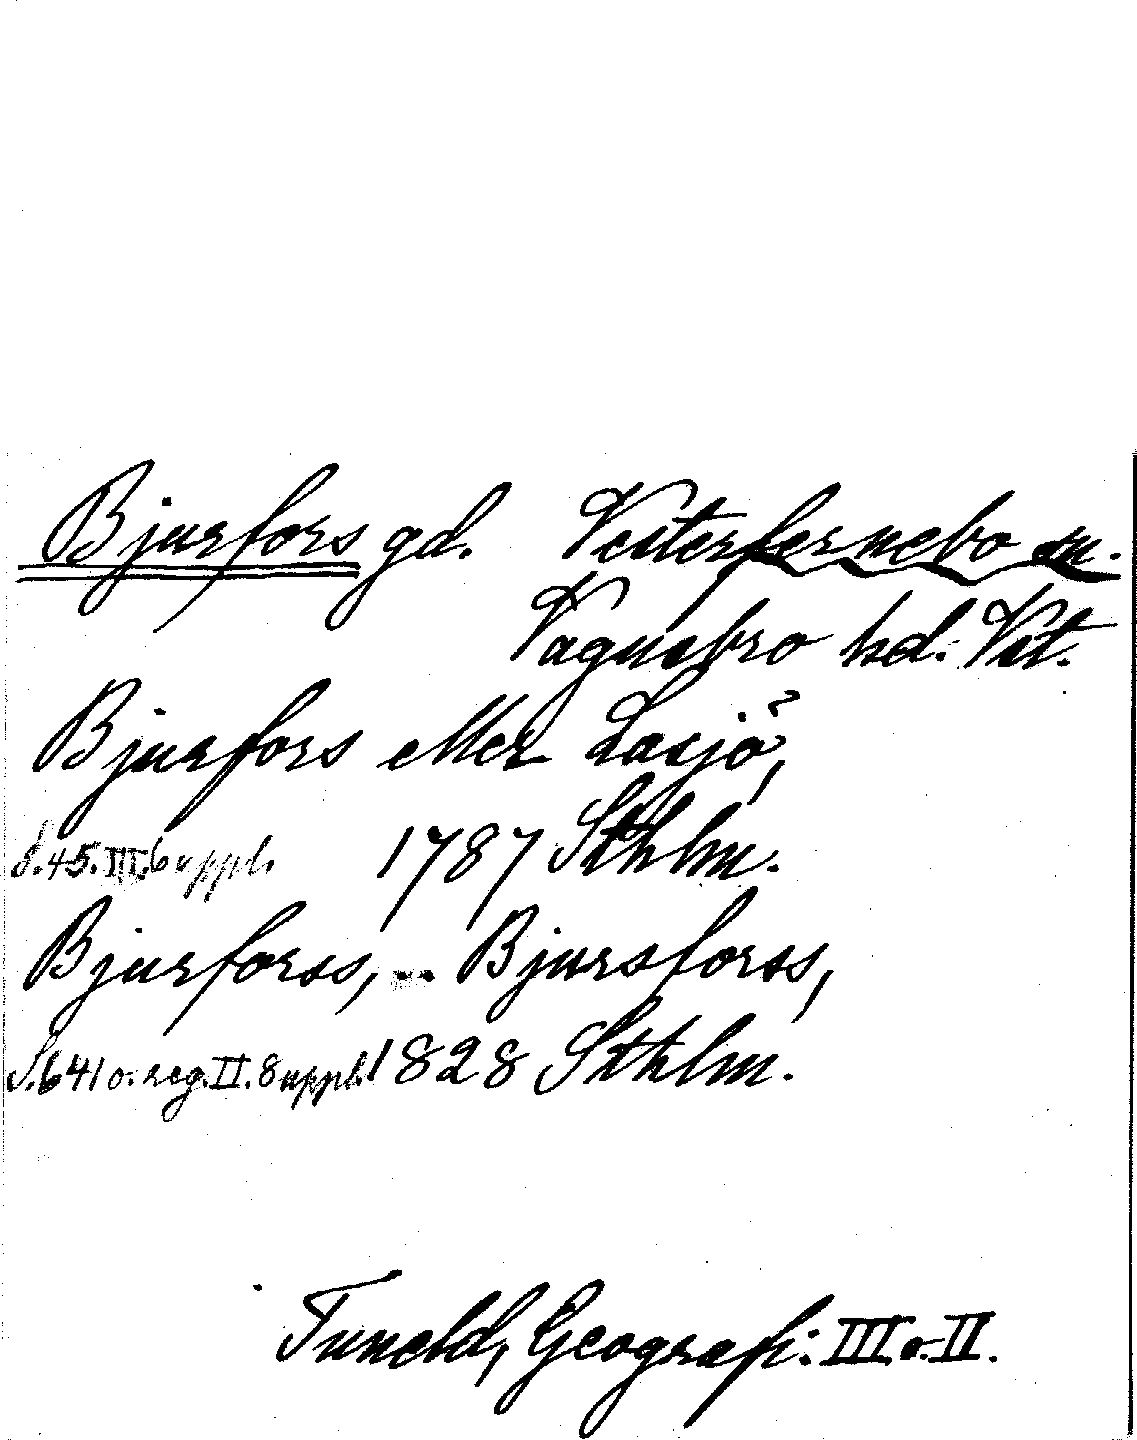 Bjurfors gd. Vesterfernebo sn.
Vagnsbro hd. Vst.
Bjurfors eller Lasjö,
S.45.III.6 uppl. 1787 Sthlm.
Bjurforss, -- Bjursforss,
S.641 o. reg. II. 8 uppl. 1828 Sthlm.
Tuneld, Geografi: III o. II.